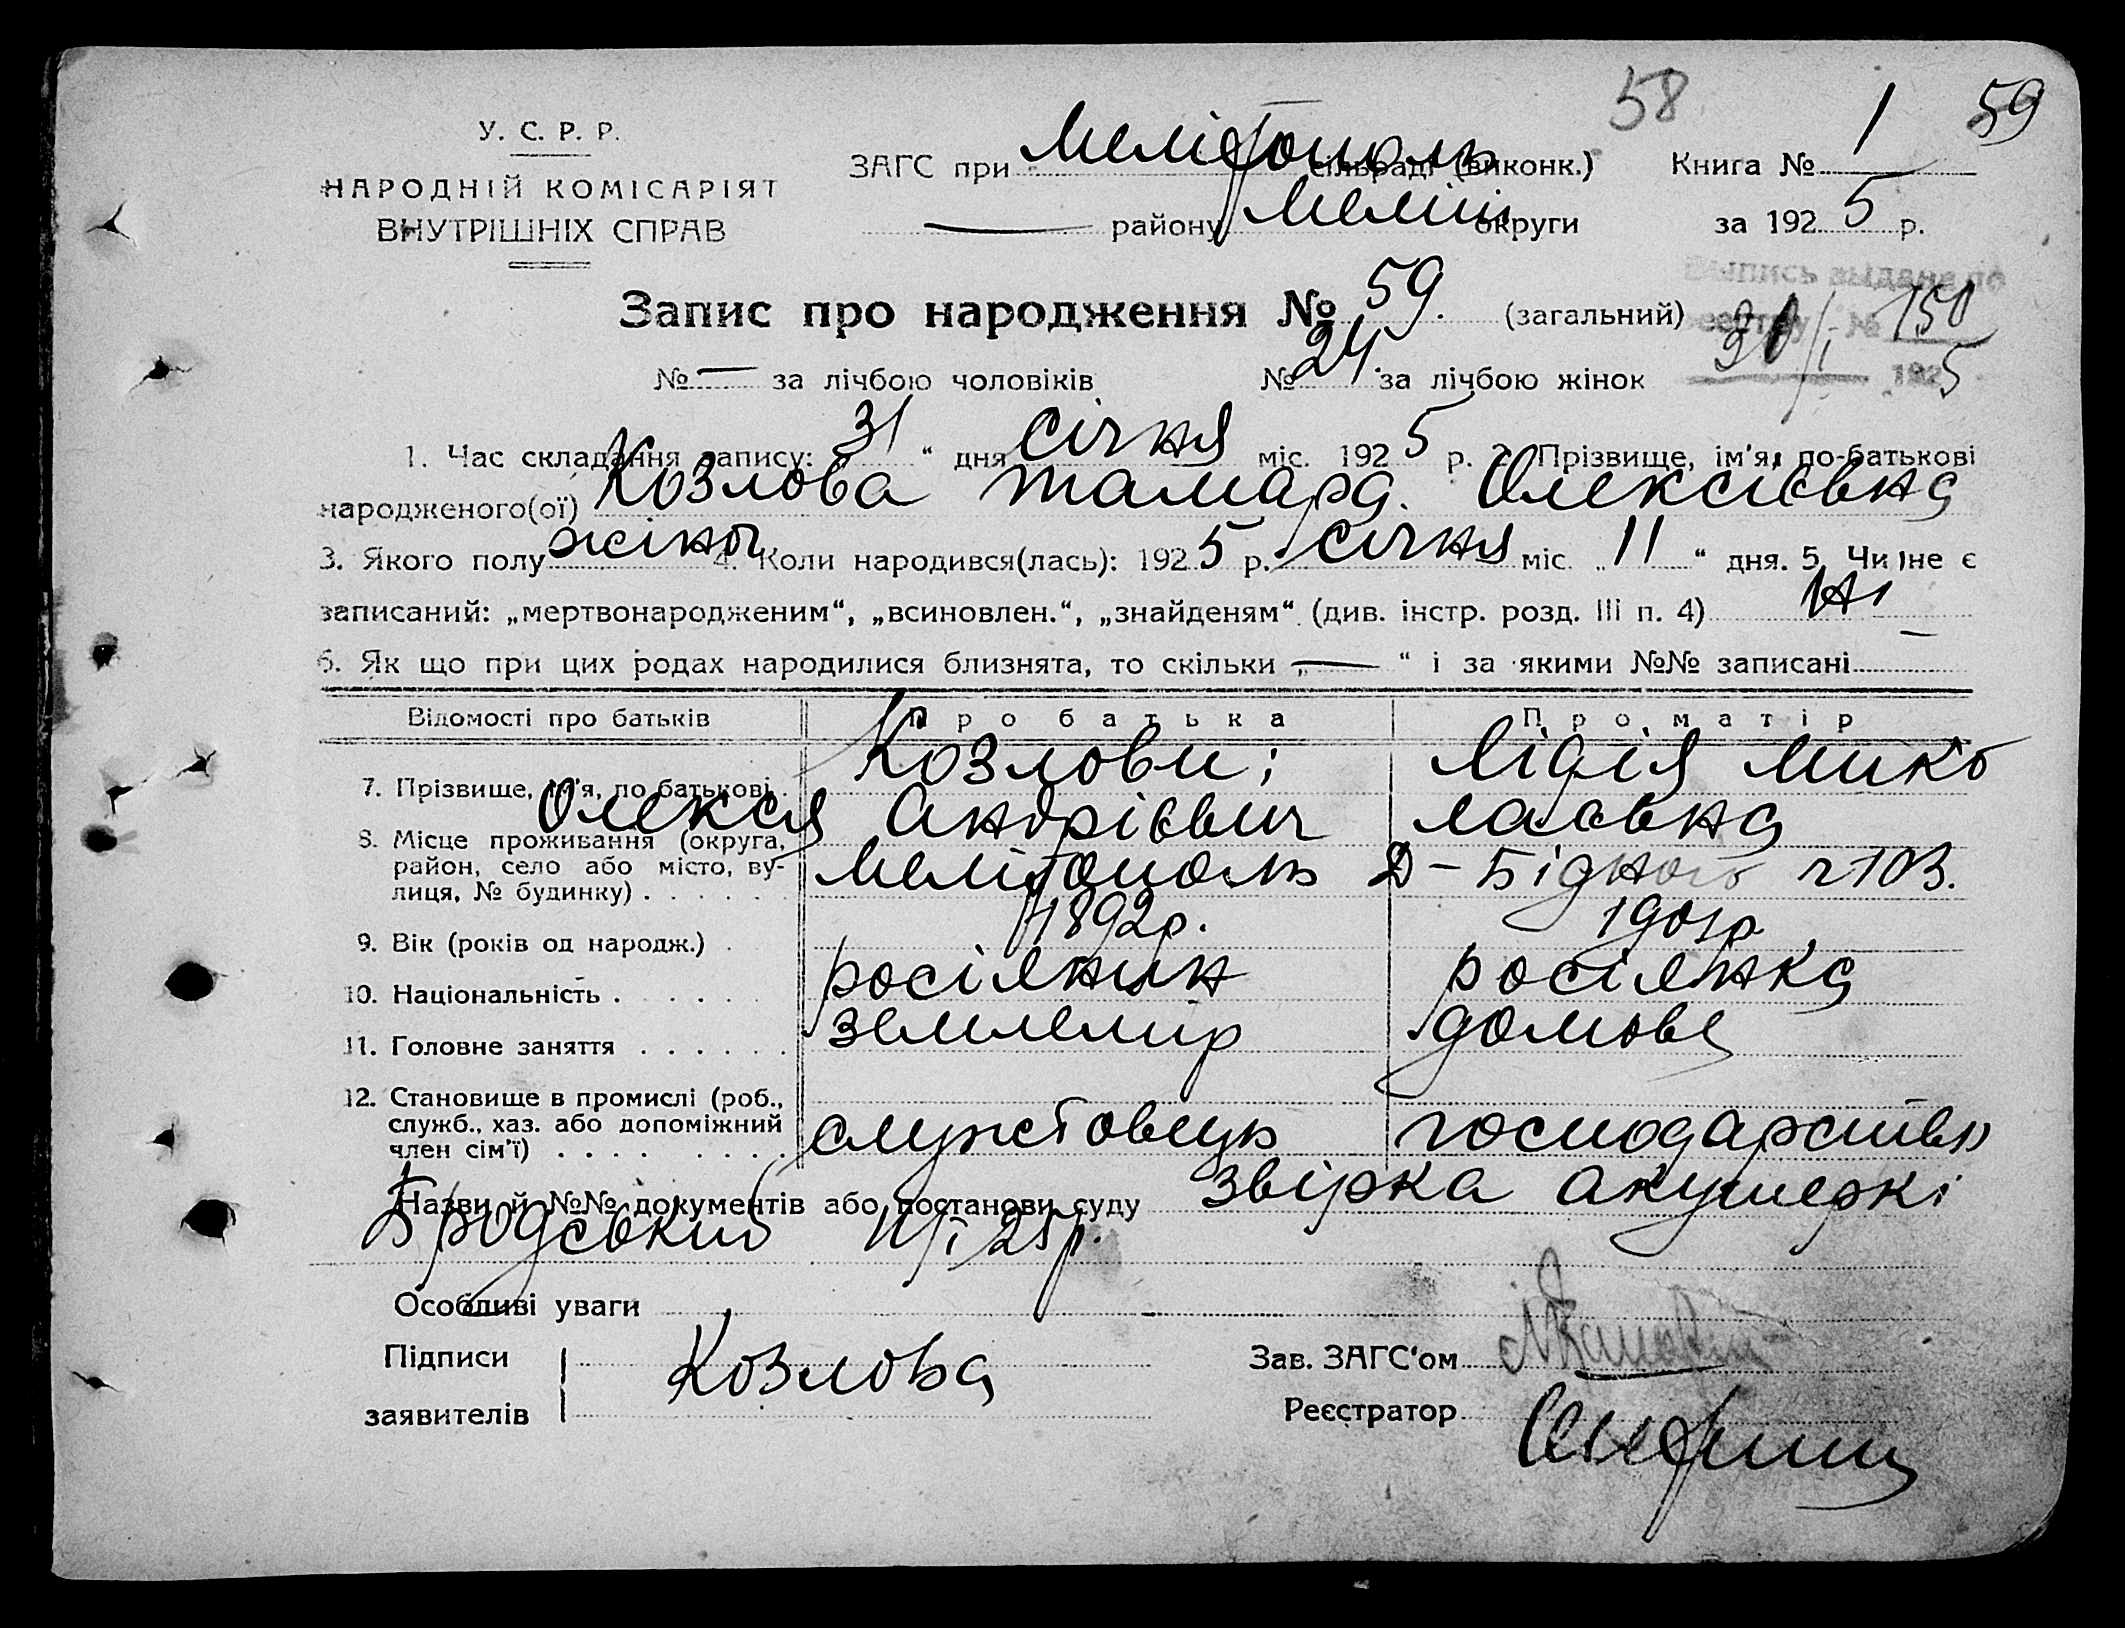 58
59
У. С. Р. Р.
НАРОДНІЙ КОМІСАРІЯТ
ВНУТРІШНІХ СПРАВ
ЗАГС при Мелітополь сільраді (виконк.) Книга № 1
— району Меліт округи за 1925 р.
Выпись выдана по
реестру № 150
31/I 1925
Запис про народження № 59. (загальний)
№ — за лічбою чоловіків № 24. за лічбою жінок
1. Час складання запису: „31“ дня січня міс. 1925 р. 2. Прізвище, ім'я, по-батькові
народженого(ої) Козлова Тамара Олексієвна
3. Якого полу жіноч 4. Коли народився(лась): 1925 р. січня міс. „11“ дня. 5. Чи не є
записаний: „мертвонародженим“, „всиновлен.“, „знайденям“ (див. інстр. розд. III п. 4) ні
6. Як що при цих родах народилися близнята, то скільки „—“ і за якими №№ записані —
Відомості про батьків Про батька Про матір
7. Прізвище, ім'я, по батькові. Козлови; Лідія Мико
Олексій Андрієвич лаєвна
8. Місце проживання (округа, район, село або місто, вулиця, № будинку) . . . . . . Мелітополь Д-Бідного ч 103.
9. Вік (років од народж.) . 1892р. 1901р.
10. Національність . . . . . . росіянин росіянка
11. Головне заняття . . . . . . землемір домове
12. Становище в промислі (роб., служб., хаз. або допоміжний член сім'ї) . . . . . . . . службовець господарство
Назви й №№ документів або постанови суду звірка акушеркі
Бродський 11/I 25р.
Особливі уваги —
Підписи Козлова Зав. ЗАГС'ом
заявителів Реєстратор